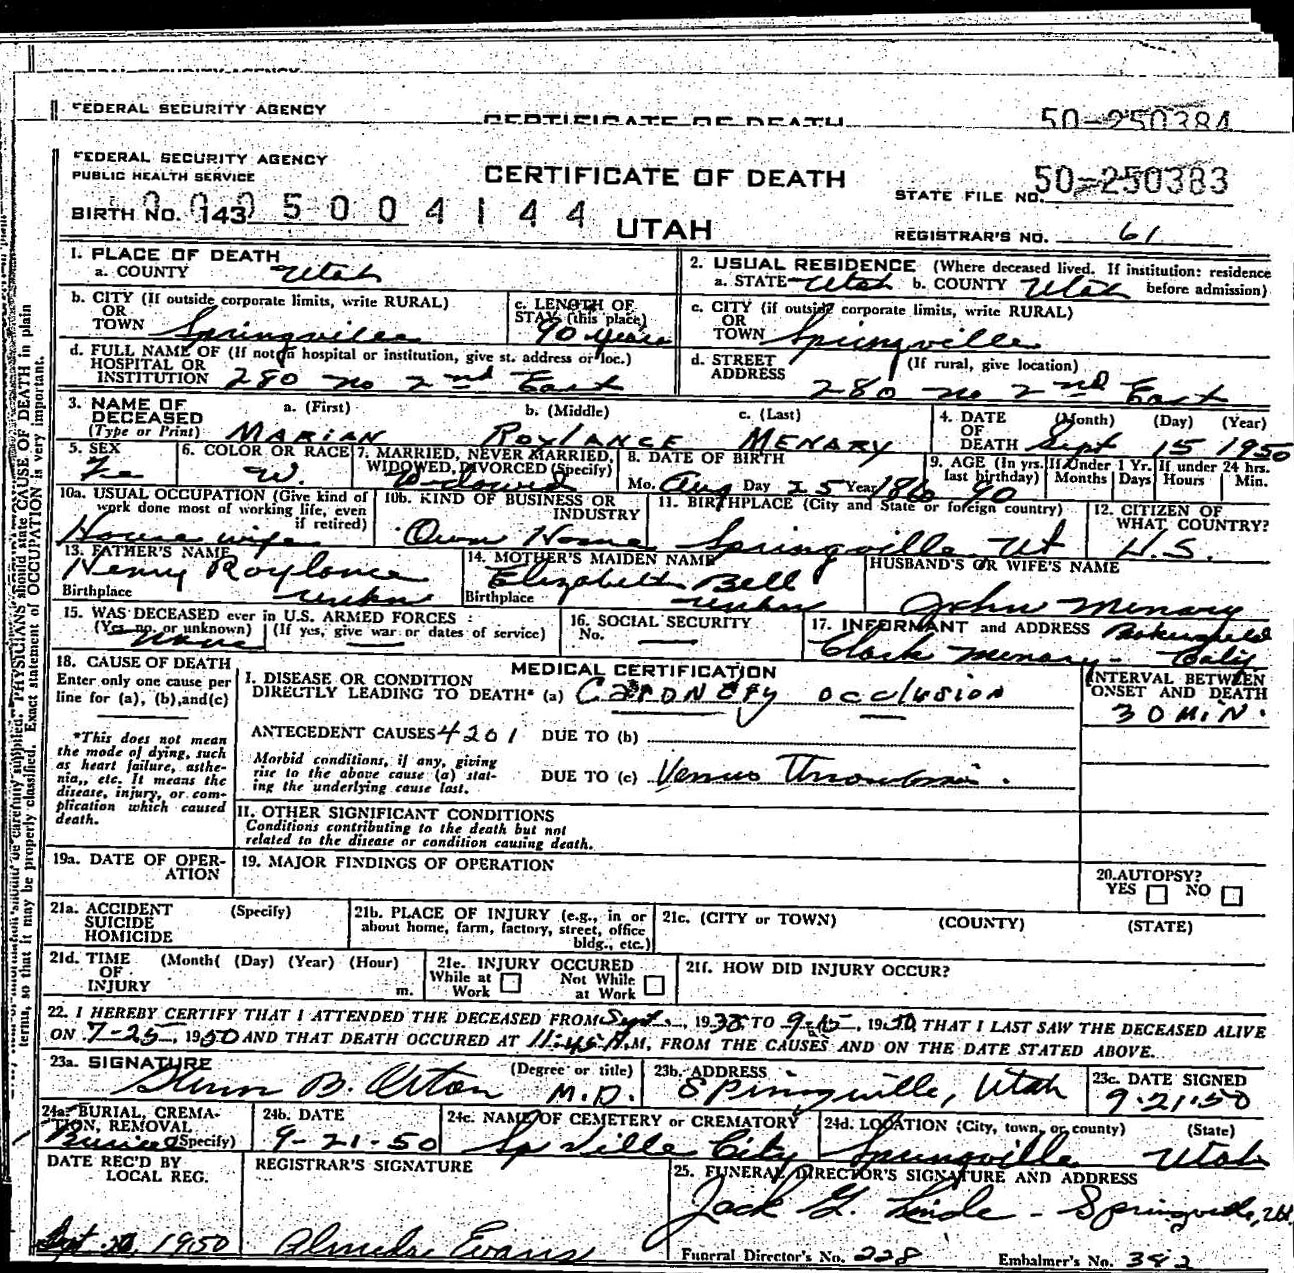 FEDERAL SECURITY AGENCY
FEDERAL SECURITY AGENCY CERTIFICATE OF DEATH 50-250384
FEDERAL SECURITY AGENCY
PUBLIC HEALTH SERVICE
CERTIFICATE OF DEATH
STATE FILE NO. 50-250383
BIRTH NO. 143 5004144
UTAH
REGISTRAR'S NO. 61
1. PLACE OF DEATH
a. COUNTY Utah
2. USUAL RESIDENCE (Where deceased lived. If institution: residence
a. STATE Utah b. COUNTY Utah before admission)
b. CITY (If outside corporate limits, write RURAL)
OR
TOWN Springville
c. LENGTH OF
STAY (this place)
90 years
c. CITY (if outside corporate limits, write RURAL)
OR
TOWN Springville
d. FULL NAME OF (If not in hospital or institution, give st. address or loc.)
HOSPITAL OR
INSTITUTION 280 no 2nd East
d. STREET (If rural, give location)
ADDRESS 280 no 2nd East
3. NAME OF
DECEASED
(Type or Print)
a. (First) b. (Middle) c. (Last)
MARIAN ROYLANCE MENARY
4. DATE (Month) (Day) (Year)
OF
DEATH Sept 15 1950
5. SEX
Fe
6. COLOR OR RACE
W.
7. MARRIED, NEVER MARRIED,
WIDOWED, DIVORCED (Specify)
Widowed
8. DATE OF BIRTH
Mo. Aug Day 25 Year 1860
9. AGE (In yrs.
last birthday)
90
If Under 1 Yr.
Months Days
If under 24 hrs.
Hours Min.
10a. USUAL OCCUPATION (Give kind of
work done most of working life, even
if retired)
House wife
10b. KIND OF BUSINESS OR
INDUSTRY
Own Home
11. BIRTHPLACE (City and State or foreign country)
Springville Ut
12. CITIZEN OF
WHAT COUNTRY?
U.S.
13. FATHER'S NAME
Henry Roylance
Birthplace unkn
14. MOTHER'S MAIDEN NAME
Elizabeth Bell
Birthplace unkn
HUSBAND'S OR WIFE'S NAME
John Menary
15. WAS DECEASED ever in U.S. ARMED FORCES:
(Yes, no, or unknown) (If yes, give war or dates of service)
16. SOCIAL SECURITY
No. —
17. INFORMANT and ADDRESS Bakersfield
Clark Menary - Calif
18. CAUSE OF DEATH
Enter only one cause per
line for (a), (b), and (c)
*This does not mean
the mode of dying, such
as heart failure, asthe-
nia, etc. It means the
disease, injury, or com-
plication which caused
death.
MEDICAL CERTIFICATION
I. DISEASE OR CONDITION
DIRECTLY LEADING TO DEATH* (a) Coronary occlusion
INTERVAL BETWEEN
ONSET AND DEATH
30 MIN.
ANTECEDENT CAUSES 4201 DUE TO (b)
Morbid conditions, if any, giving
rise to the above cause (a) stat-
ing the underlying cause last.
DUE TO (c) Venus Thrombosis.
II. OTHER SIGNIFICANT CONDITIONS
Conditions contributing to the death but not
related to the disease or condition causing death.
19a. DATE OF OPER-
ATION
19. MAJOR FINDINGS OF OPERATION
20. AUTOPSY?
YES NO
21a. ACCIDENT (Specify)
SUICIDE
HOMICIDE
21b. PLACE OF INJURY (e.g., in or
about home, farm, factory, street, office
bldg., etc.)
21c. (CITY or TOWN) (COUNTY) (STATE)
21d. TIME (Month( (Day) (Year) (Hour)
OF
INJURY m.
21e. INJURY OCCURED
While at Not While
Work at Work
21f. HOW DID INJURY OCCUR?
22. I HEREBY CERTIFY THAT I ATTENDED THE DECEASED FROM Sept, 1938 TO 9-15, 1950, THAT I LAST SAW THE DECEASED ALIVE
ON 7-25, 1950 AND THAT DEATH OCCURED AT 11:45 M, FROM THE CAUSES AND ON THE DATE STATED ABOVE.
23a. SIGNATURE (Degree or title)
B. Orton M.D.
23b. ADDRESS
Springville, Utah
23c. DATE SIGNED
9-21-50
24a. BURIAL, CREMA-
TION, REMOVAL
(Specify)
Buried
24b. DATE
9-21-50
24c. NAME OF CEMETERY or CREMATORY
Spville City
24d. LOCATION (City, town, or county) (State)
Springville Utah
DATE REC'D BY
LOCAL REG.
1950
REGISTRAR'S SIGNATURE
Almeda Evans
25. FUNERAL DIRECTOR'S SIGNATURE AND ADDRESS
Jack G. - Springville, Ut
Funeral Director's No. 228 Embalmer's No. 382
PHYSICIANS should state CAUSE OF DEATH in plain
terms, so that it may be properly classified. Exact statement of OCCUPATION is very important.